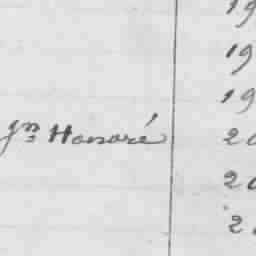 19
19
19
Jn Honoré 20
20
2